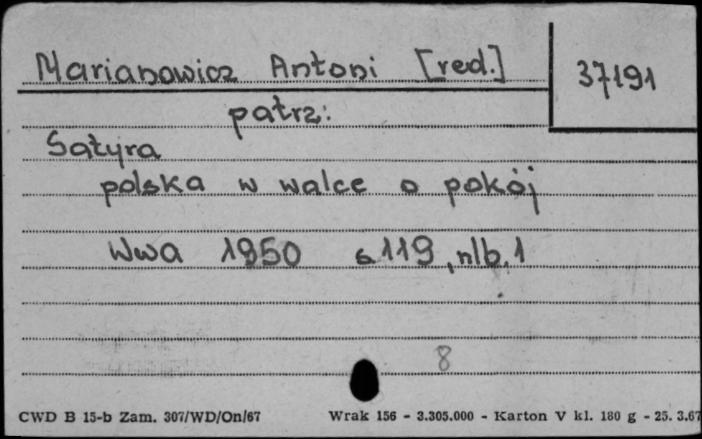 Marianowicz Antoni [red.]
37191
patrz:
Satyra
polska w walce o pokój
Wwa 1950 s.119, nlb.1
8
CWD B 15-b Zam. 307/WD/On/67 Wrak 156 - 3.305.000 - Karton V kl. 180 g - 25. 3.67